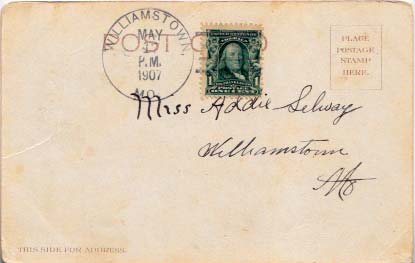 WILLIAMSTOWN,
MAY
P.M.
1907
MO.
POST CARD
PLACE
POSTAGE
STAMP
HERE.
ONE CENT
Miss Addie Selway
Williamstown
Mo
THIS SIDE FOR ADDRESS.